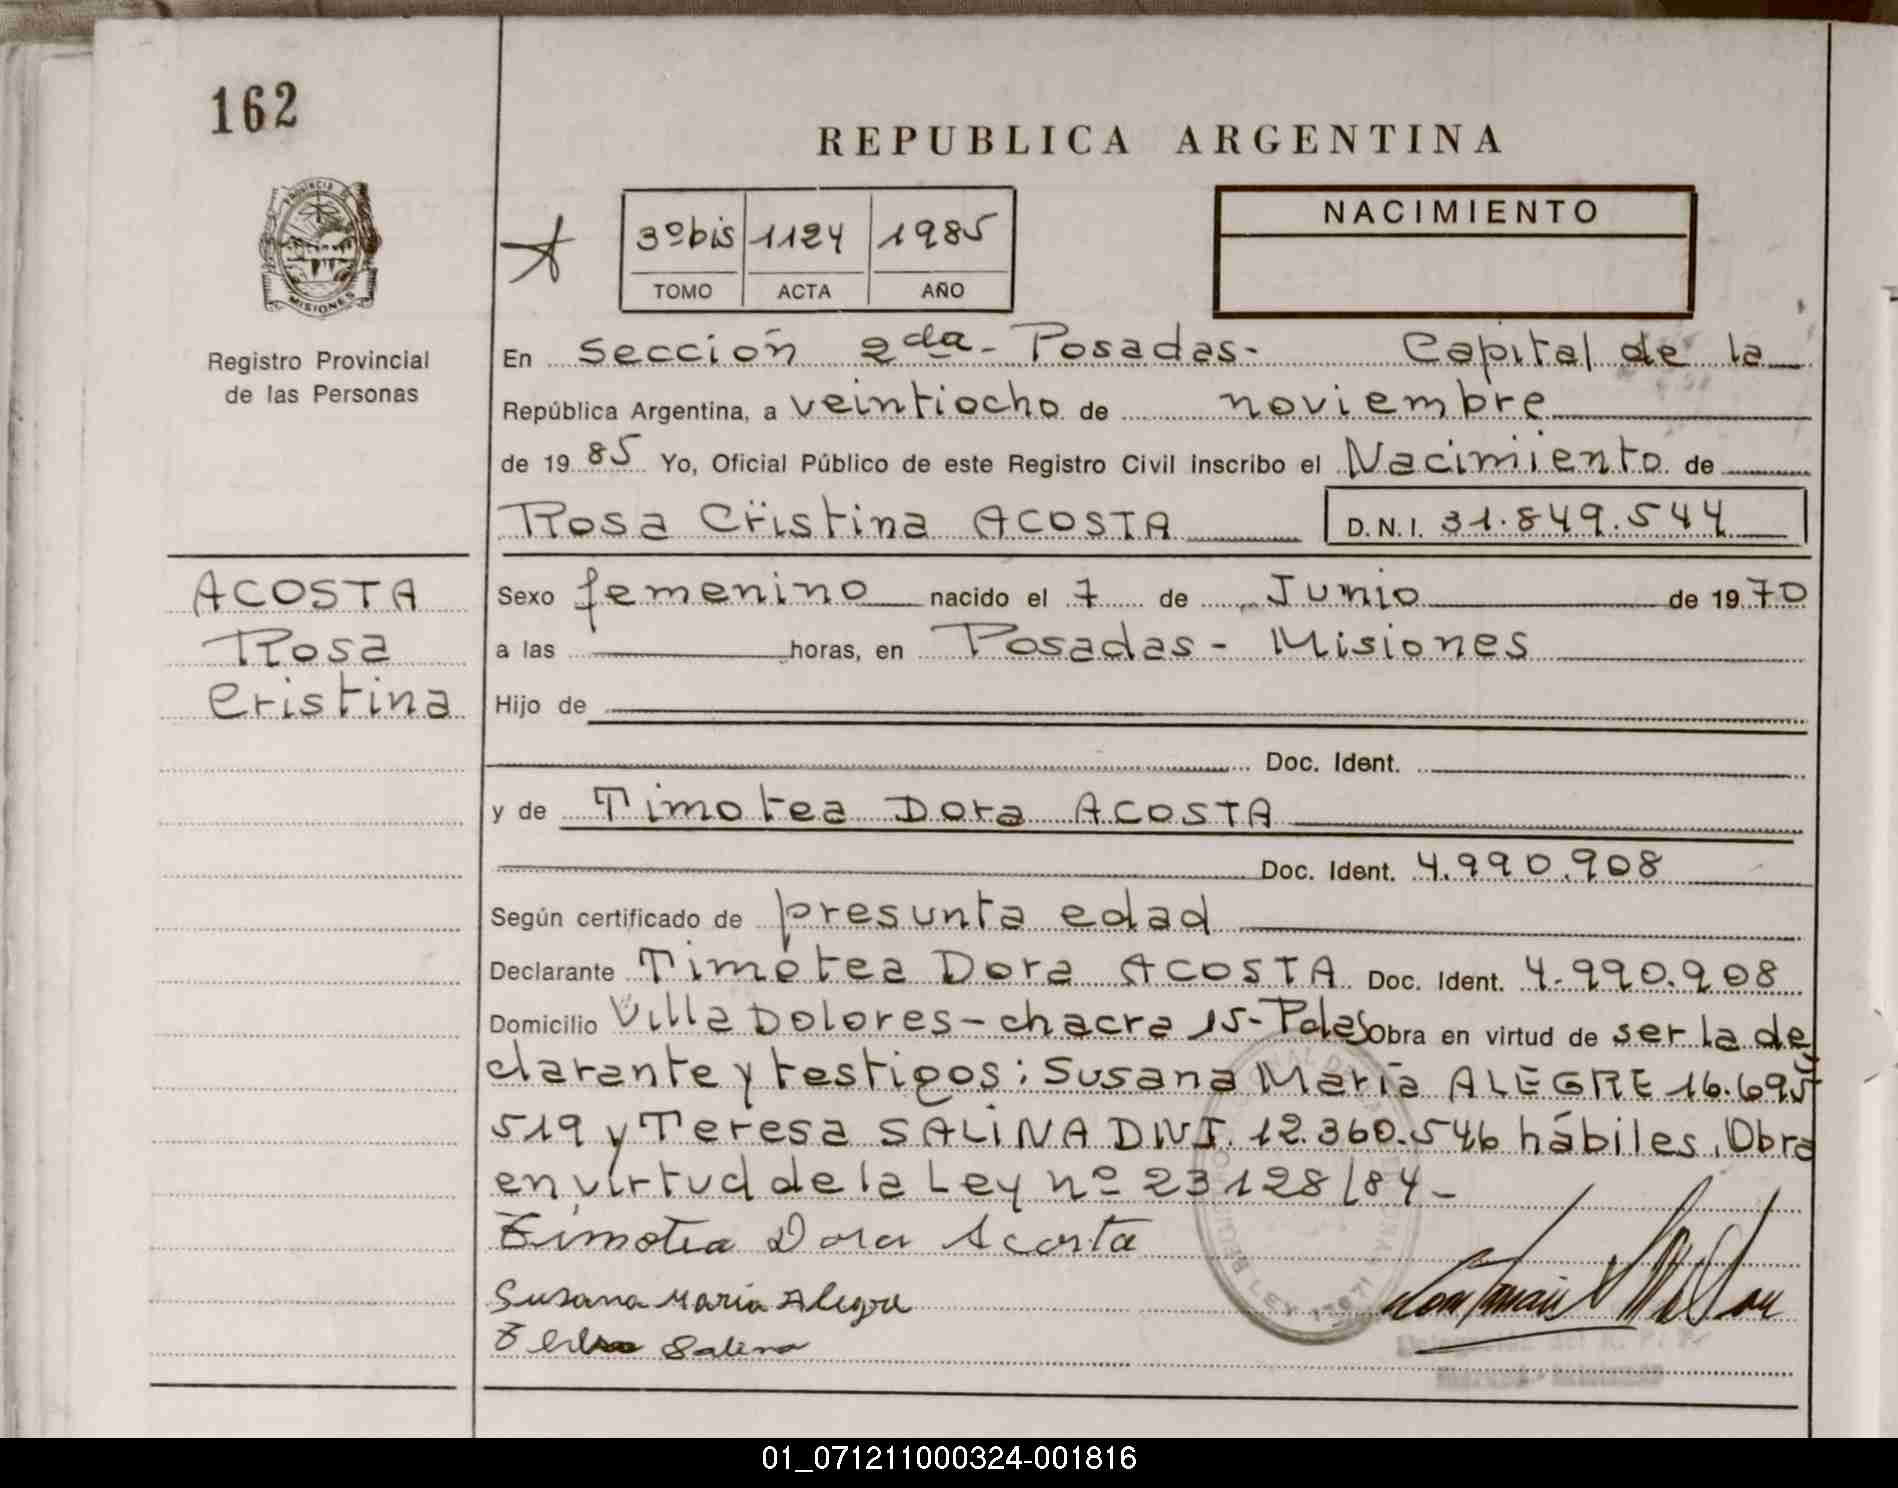 162
REPUBLICA ARGENTINA
PROVINCIA DE
MISIONES
3º bis 1124 1985
TOMO ACTA AÑO
NACIMIENTO
Registro Provincial
de las Personas
En Sección 2da - Posadas - Capital de la
República Argentina, a veintiocho de noviembre
de 19 85 Yo, Oficial Público de este Registro Civil inscribo el Nacimiento de
Rosa Cristina ACOSTA D.N.I. 31.849.544
ACOSTA
Rosa
Cristina
Sexo femenino nacido el 7 de Junio de 19 70
a las horas, en Posadas - Misiones
Hijo de
Doc. Ident.
y de Timotea Dora ACOSTA
Doc. Ident. 4.990.908
Según certificado de presunta edad
Declarante Timotea Dora ACOSTA Doc. Ident. 4.990.908
Domicilio Villa Dolores - chacra 15 - Pdas Obra en virtud de ser la de
clarante y testigos: Susana María ALEGRE 16.695
519 y Teresa SALINA DNI. 12.360.546 hábiles. Obra
en virtud de la Ley nº 23128/84 -
Timotea Dora Acosta
Susana María Alegre
Salina
01_071211000324-001816